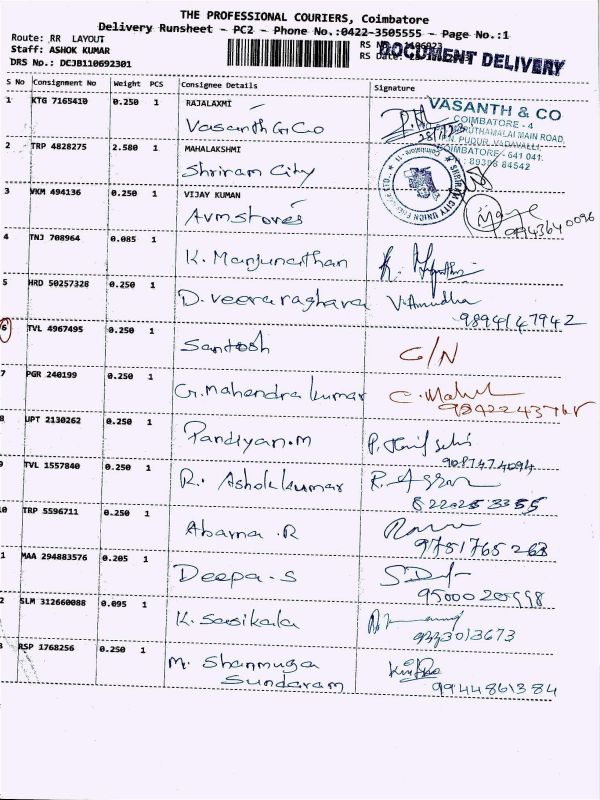 THE PROFESSIONAL COURIERS, Coimbatore
Delivery Runsheet - PC2 - Phone No.:0422-3505555 - Page No.:1
Route: RR LAYOUT
RS No
Staff: ASHOK KUMAR
RS Date:
DOCUMENT DELIVERY
DRS No.: DCJB110692301
S No Consignment No Weight PCS Consignee Details Signature
1 KTG 7165410 0.250 1 RAJALAXMI
Vasanth & Co
VASANTH & CO
COIMBATORE - 4
MARUTHAMALAI MAIN ROAD,
P.N. PUDUR, VADAVALLI,
COIMBATORE - 641 041.
: 89398 84542
2 TRP 4828275 2.580 1 MAHALAKSHMI
Shriram City
SHRIRAM CITY UNION FINANCE LTD
Coimbatore - 11
3 VKM 494136 0.250 1 VIJAY KUMAN
Avmstores
9943640096
4 TNJ 708964 0.085 1
K. Manjunathan
5 HRD 50257328 0.250 1
D. veeraraghava V. Amudha
9894147942
6 TVL 4967495 0.250 1
Santosh C/N
7 PGR 240199 0.250 1
G. mahendra kumar
8 UPT 2130262 0.250 1
Pandiyan.m
9087474094
9 TVL 1557840 0.250 1
R. Ashokkumar
8220253355
10 TRP 5596711 0.250 1
Abarna .R
9751765268
1 MAA 294883576 0.205 1
Deepa.S
9500020998
2 SLM 312660088 0.095 1
K. Sasikala
9333013673
3 RSP 1768256 0.250 1
M. Shanmuga
Sundaram
9944861384